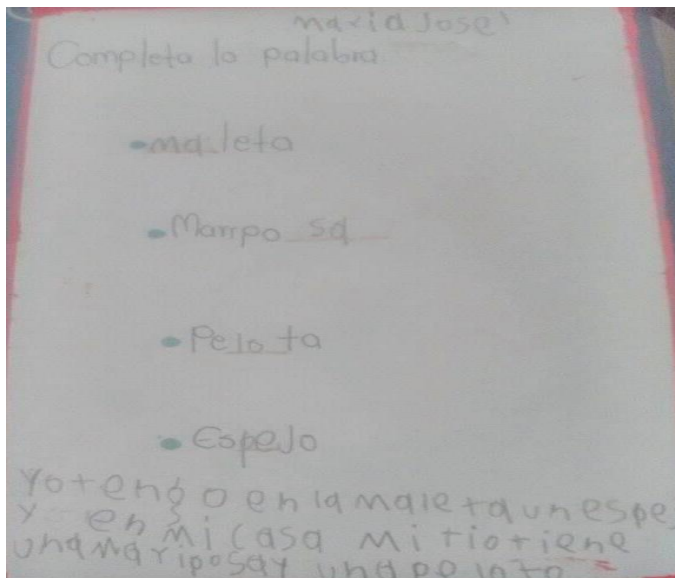 maria José
Completa la palabra
• maleta
• Mariposa
• Pelota
• Espejo
Yo tengo en la maleta un espe
y en mi casa mi tio tiene
una mariposa y una pelota